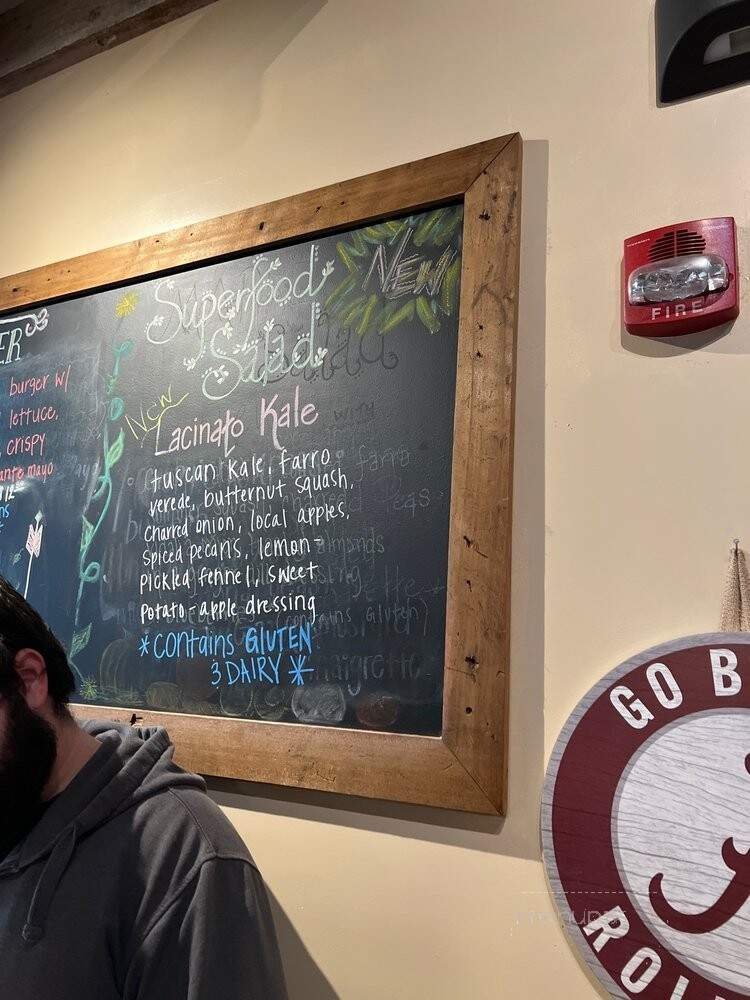 ER
burger w/
lettuce,
crispy
mayo
Superfood
Salad
NEW
New
Lacinato Kale
tuscan kale, farro
verede, butternut squash,
charred onion, local apples,
spiced pecans, lemon-
pickled fennel, sweet
potato-apple dressing
*contains GLUTEN
& DAIRY *
FIRE
GO B
ROL